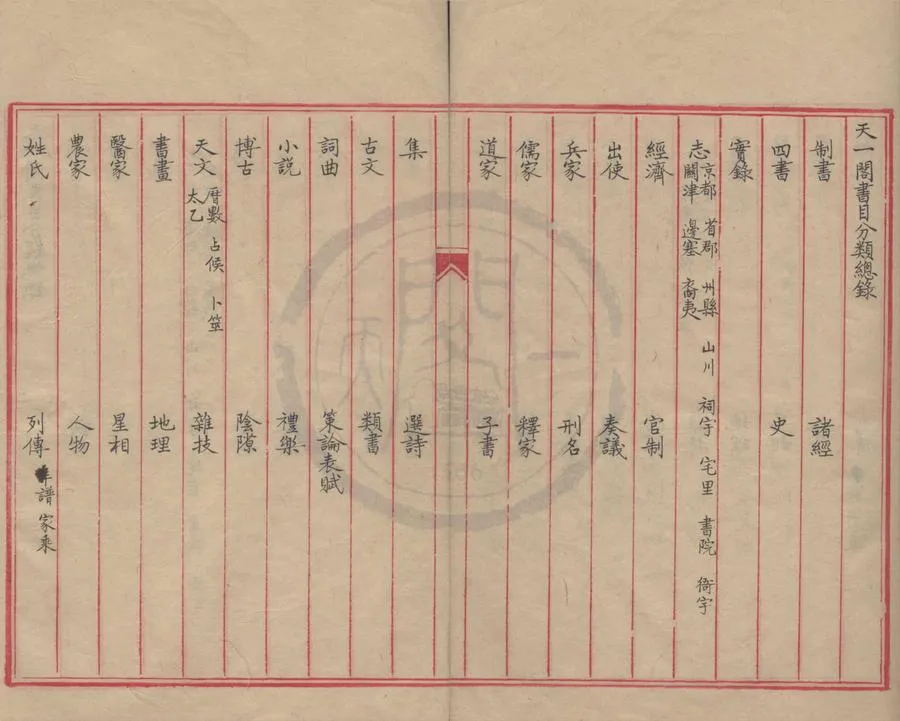 天一閣書目分類總錄
制書 諸經
四書 史
實錄
志 京都 關津 省郡 邊塞 州縣 裔夷 山川 祠宇 宅里 書院 衙宇
經濟 官制
出使 奏議
兵家 刑名
儒家 釋家
道家 子書
集 選詩
古文 類書
詞曲 策論表賦
小說 禮樂
博古 陰隲
天文 曆數 太乙 占候 卜筮 雜技
書畫 地理
醫家 星相
農家 人物
姓氏 列傳 年譜 家乘